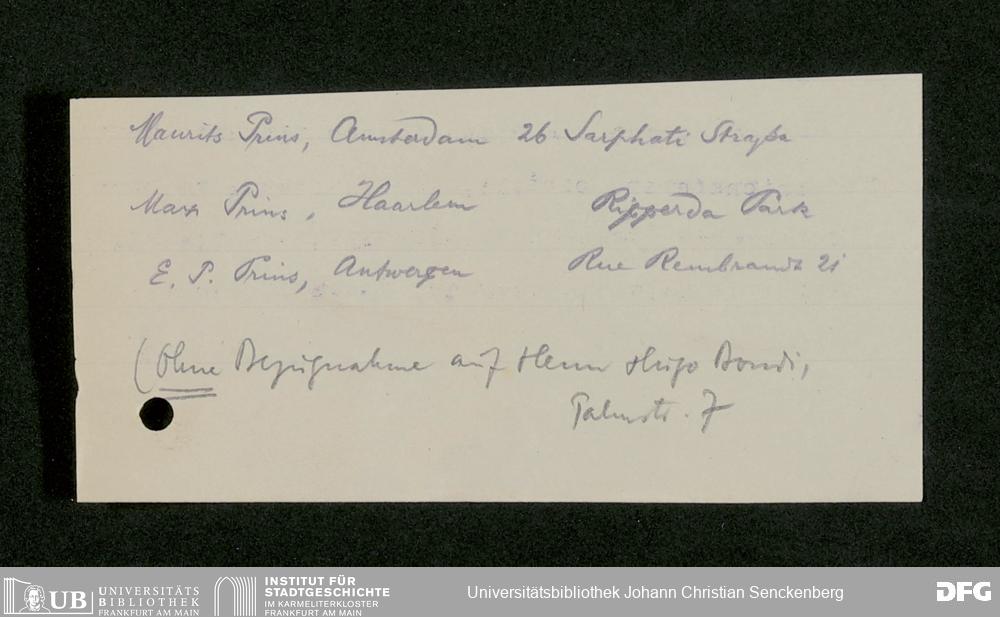 Maurits Prins, Amsterdam 26 Sarphati Straße
Max Prins, Haarlem Ripperda Park
E. P. Prins, Antwerpen Rue Rembrandt 21
(Ohne Bezugnahme auf Herrn Hugo Bondi,
Palmstr. 7
UB UNIVERSITÄTS BIBLIOTHEK FRANKFURT AM MAIN
INSTITUT FÜR STADTGESCHICHTE IM KARMELITERKLOSTER FRANKFURT AM MAIN
Universitätsbibliothek Johann Christian Senckenberg
DFG